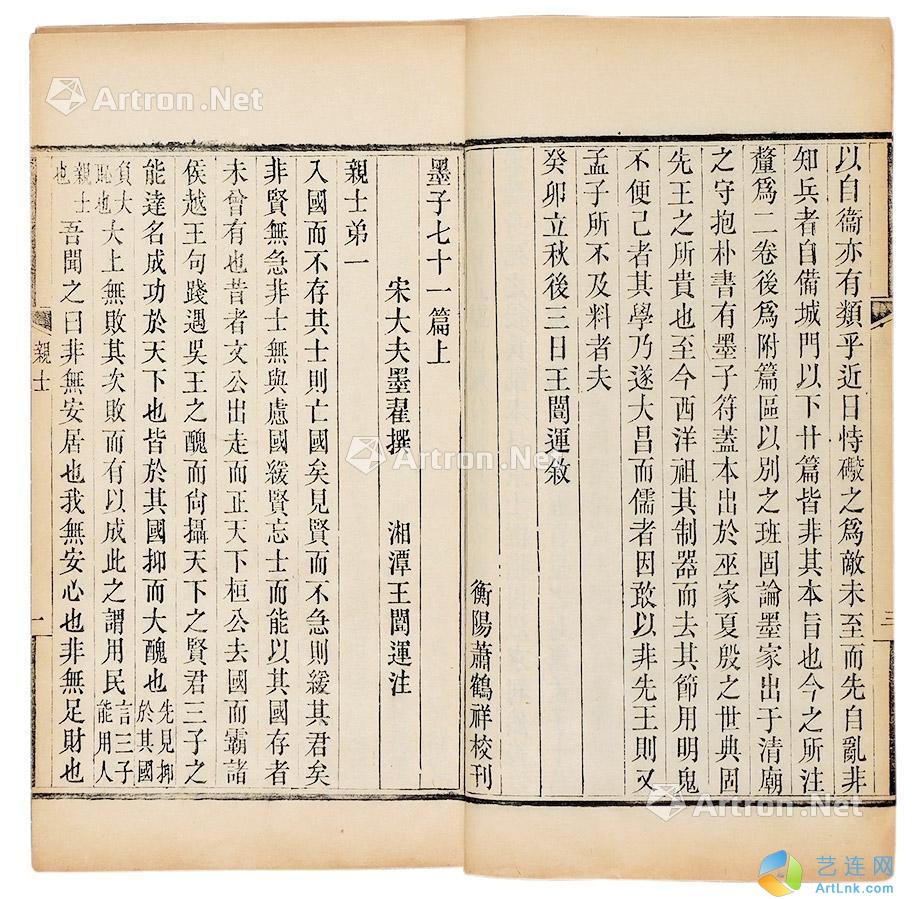 以自衞亦有類乎近日恃礮之爲敵未至而先自亂非
知兵者自備城門以下廿篇皆非其本旨也今之所注
釐爲二卷後爲附篇區以別之班固論墨家出于清廟
之守抱朴書有墨子符蓋本出於巫家夏殷之世典固
先王之所貴也至今西洋祖其制器而去其節用明鬼
不便己者其學乃遂大昌而儒者因敢以非先王則又
孟子所不及料者夫
癸卯立秋後三日王闓運敘
衡陽蕭鶴祥校刊
三
墨子七十一篇上
宋大夫墨翟撰 湘潭王闓運注
親士弟一
入國而不存其士則亡國矣見賢而不急則緩其君矣
非賢無急非士無與慮國緩賢忘士而能以其國存者
未曾有也昔者文公出走而正天下桓公去國而霸諸
侯越王句踐遇吳王之醜而尙攝天下之賢君三子之
能達名成功於天下也皆於其國抑而大醜也先見抑於其國
負大恥也大上無敗其次敗而有以成此之謂用民言三子能用人
親士也吾聞之曰非無安居也我無安心也非無足財也
親士
一
Artron.Net
Artron.Net
Artron.Net
艺连网
ArtLnk.com